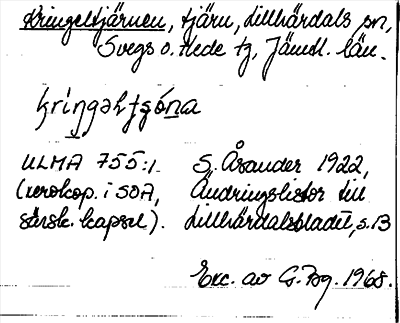 Kringeltjärnen, tjärn, Lillhärdals sn,
Svegs o. Hede tg, Jämtl. län.
kriŋəltʂó̱na
ULMA 755:1. S. Åsander 1922,
(xerokop. i SOA, Ändringslistor till
särsk. kapsel). Lillhärdalsbladet, s. 13
Exc. av G. Bg. 1968.